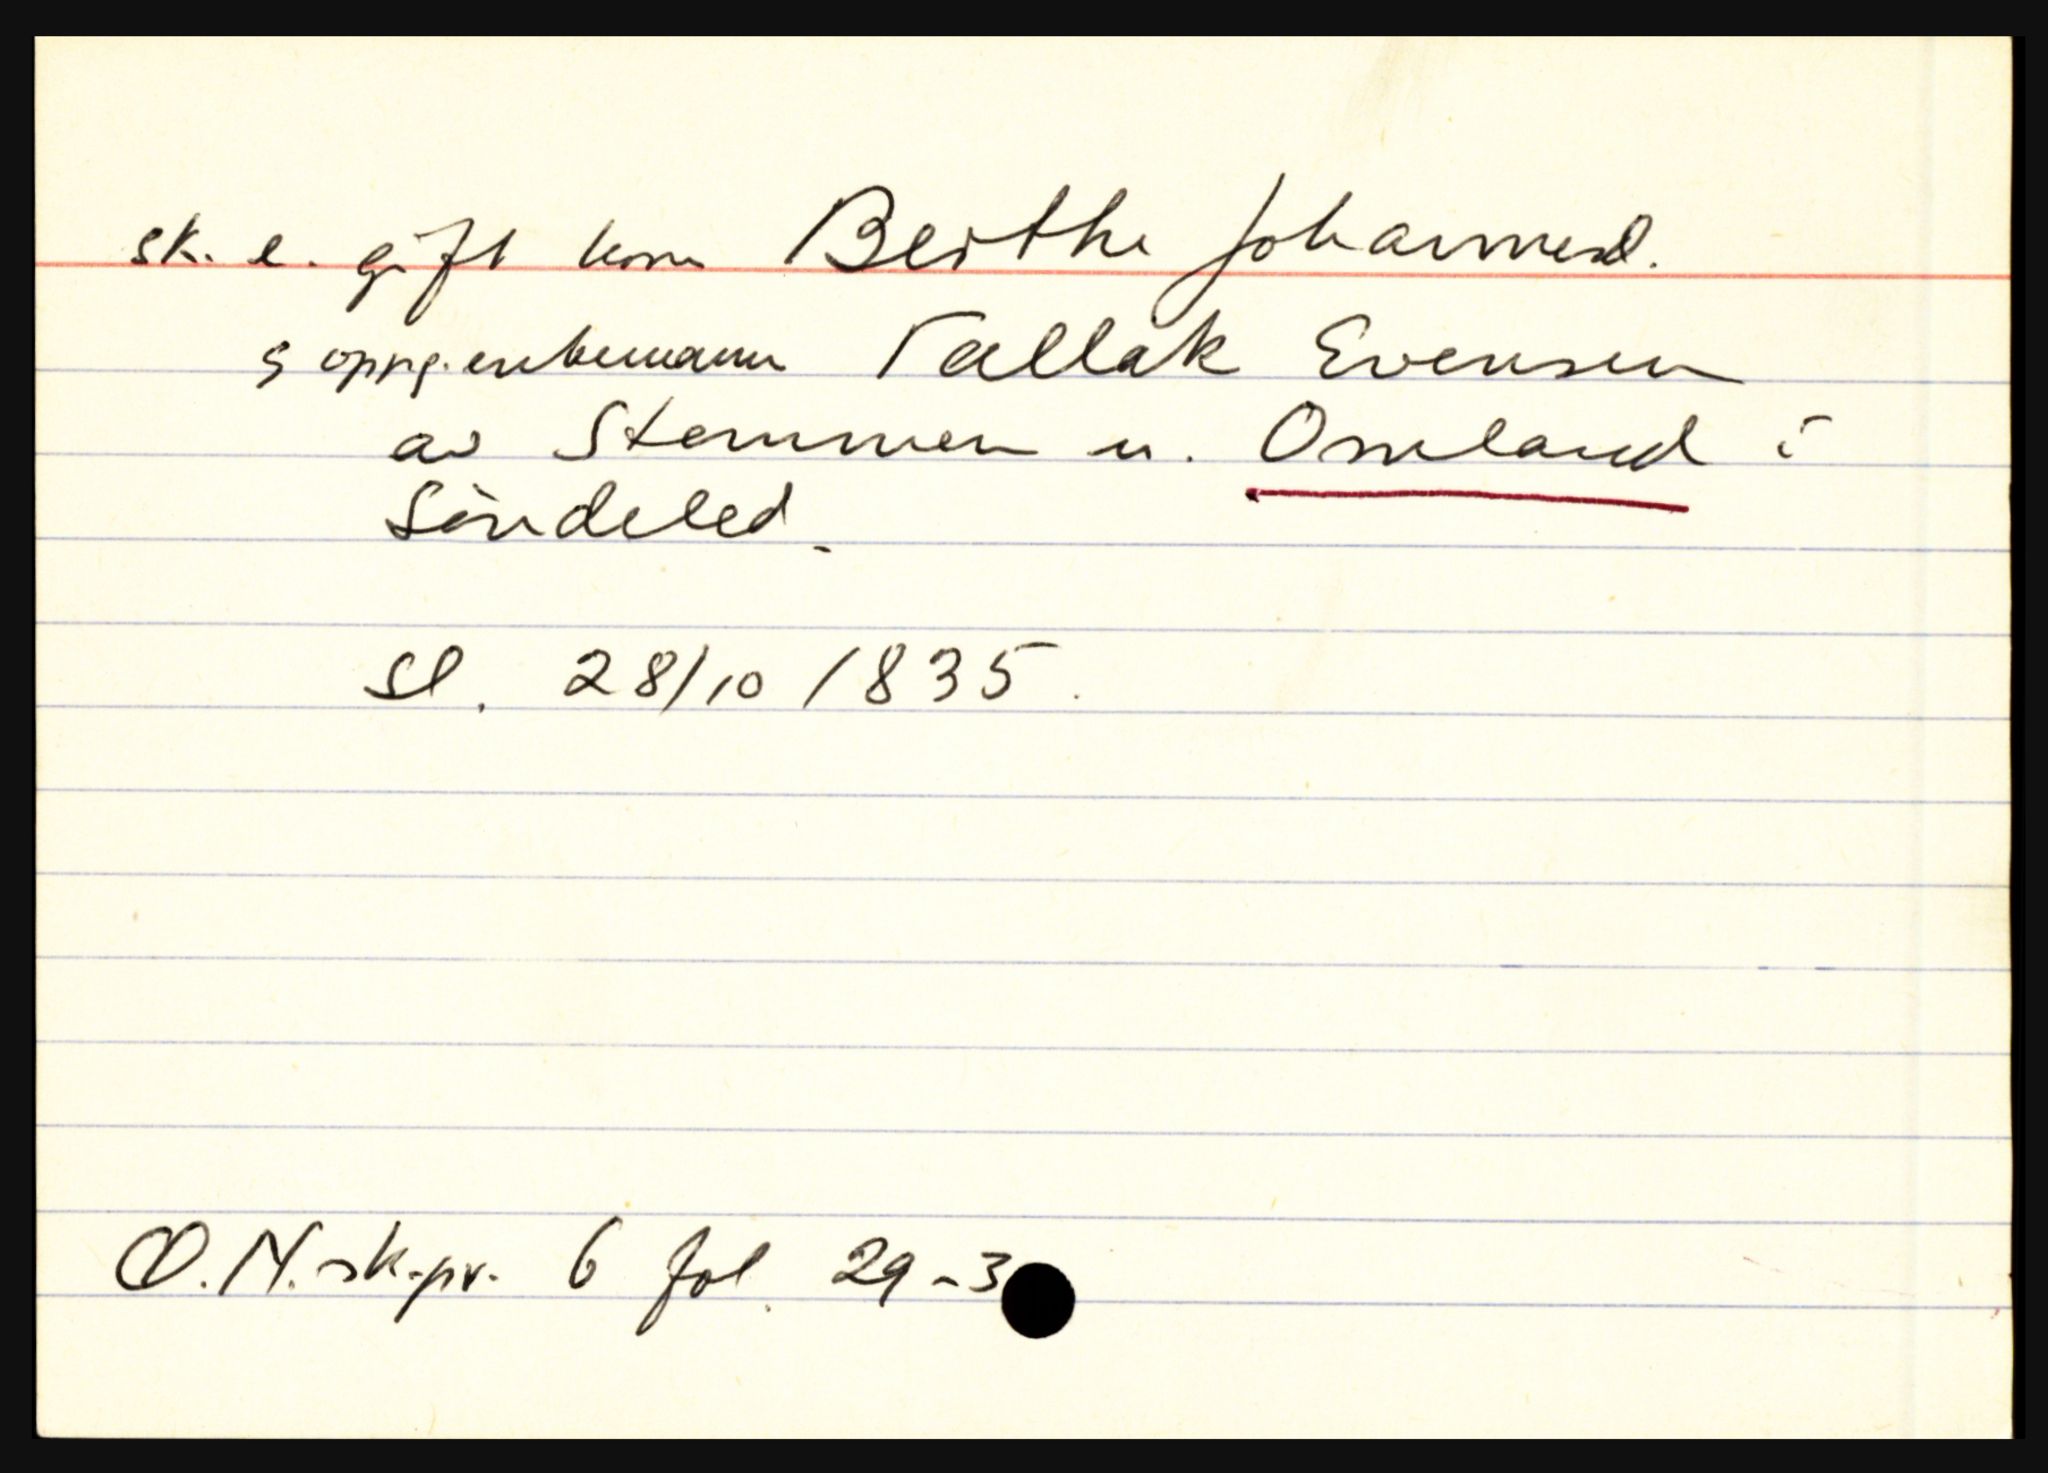 sk. e. gift kone Berthe Johannesd.
g oppg. enkemann Tallak Evensen
av Stemmen u. Omland i
Søndeled.
Sl. 28/10 1835.
Ø.N.sk.pr. 6 fol. 29-3